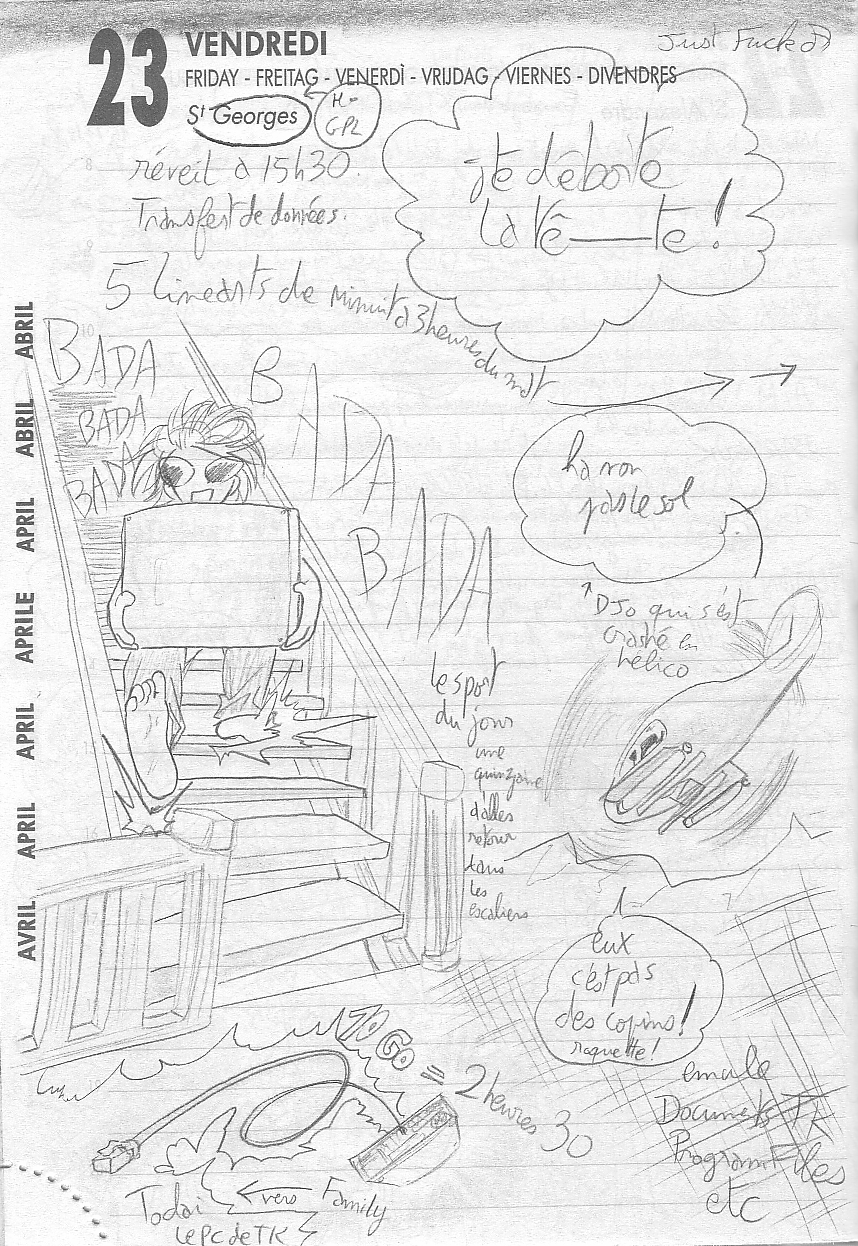 Just Fucked
23 VENDREDI
FRIDAY - FREITAG - VENERDÌ - VRIJDAG - VIERNES - DIVENDRES
St Georges
GPL
réveil à 15h30.
Transfert de données.
j'te déboîte
la tê——te!
5 linearts de minuit à 3 heures du mat
BADA
BADA
BADA
BADA
BADA
ha non
pas le sol
DJo qui s'est
crashé en
hélico
le sport
du jour
une
quinzaine
d'alles
retour
dans
les
escaliers
eux
c'est pas
des copins!
raquette!
70 Go = 2 heures 30
emule
Documents TK
Program Files
etc
Todai ← vers Family
le PC de TK
ABRIL
ABRIL
APRIL
APRILE
APRIL
APRIL
AVRIL